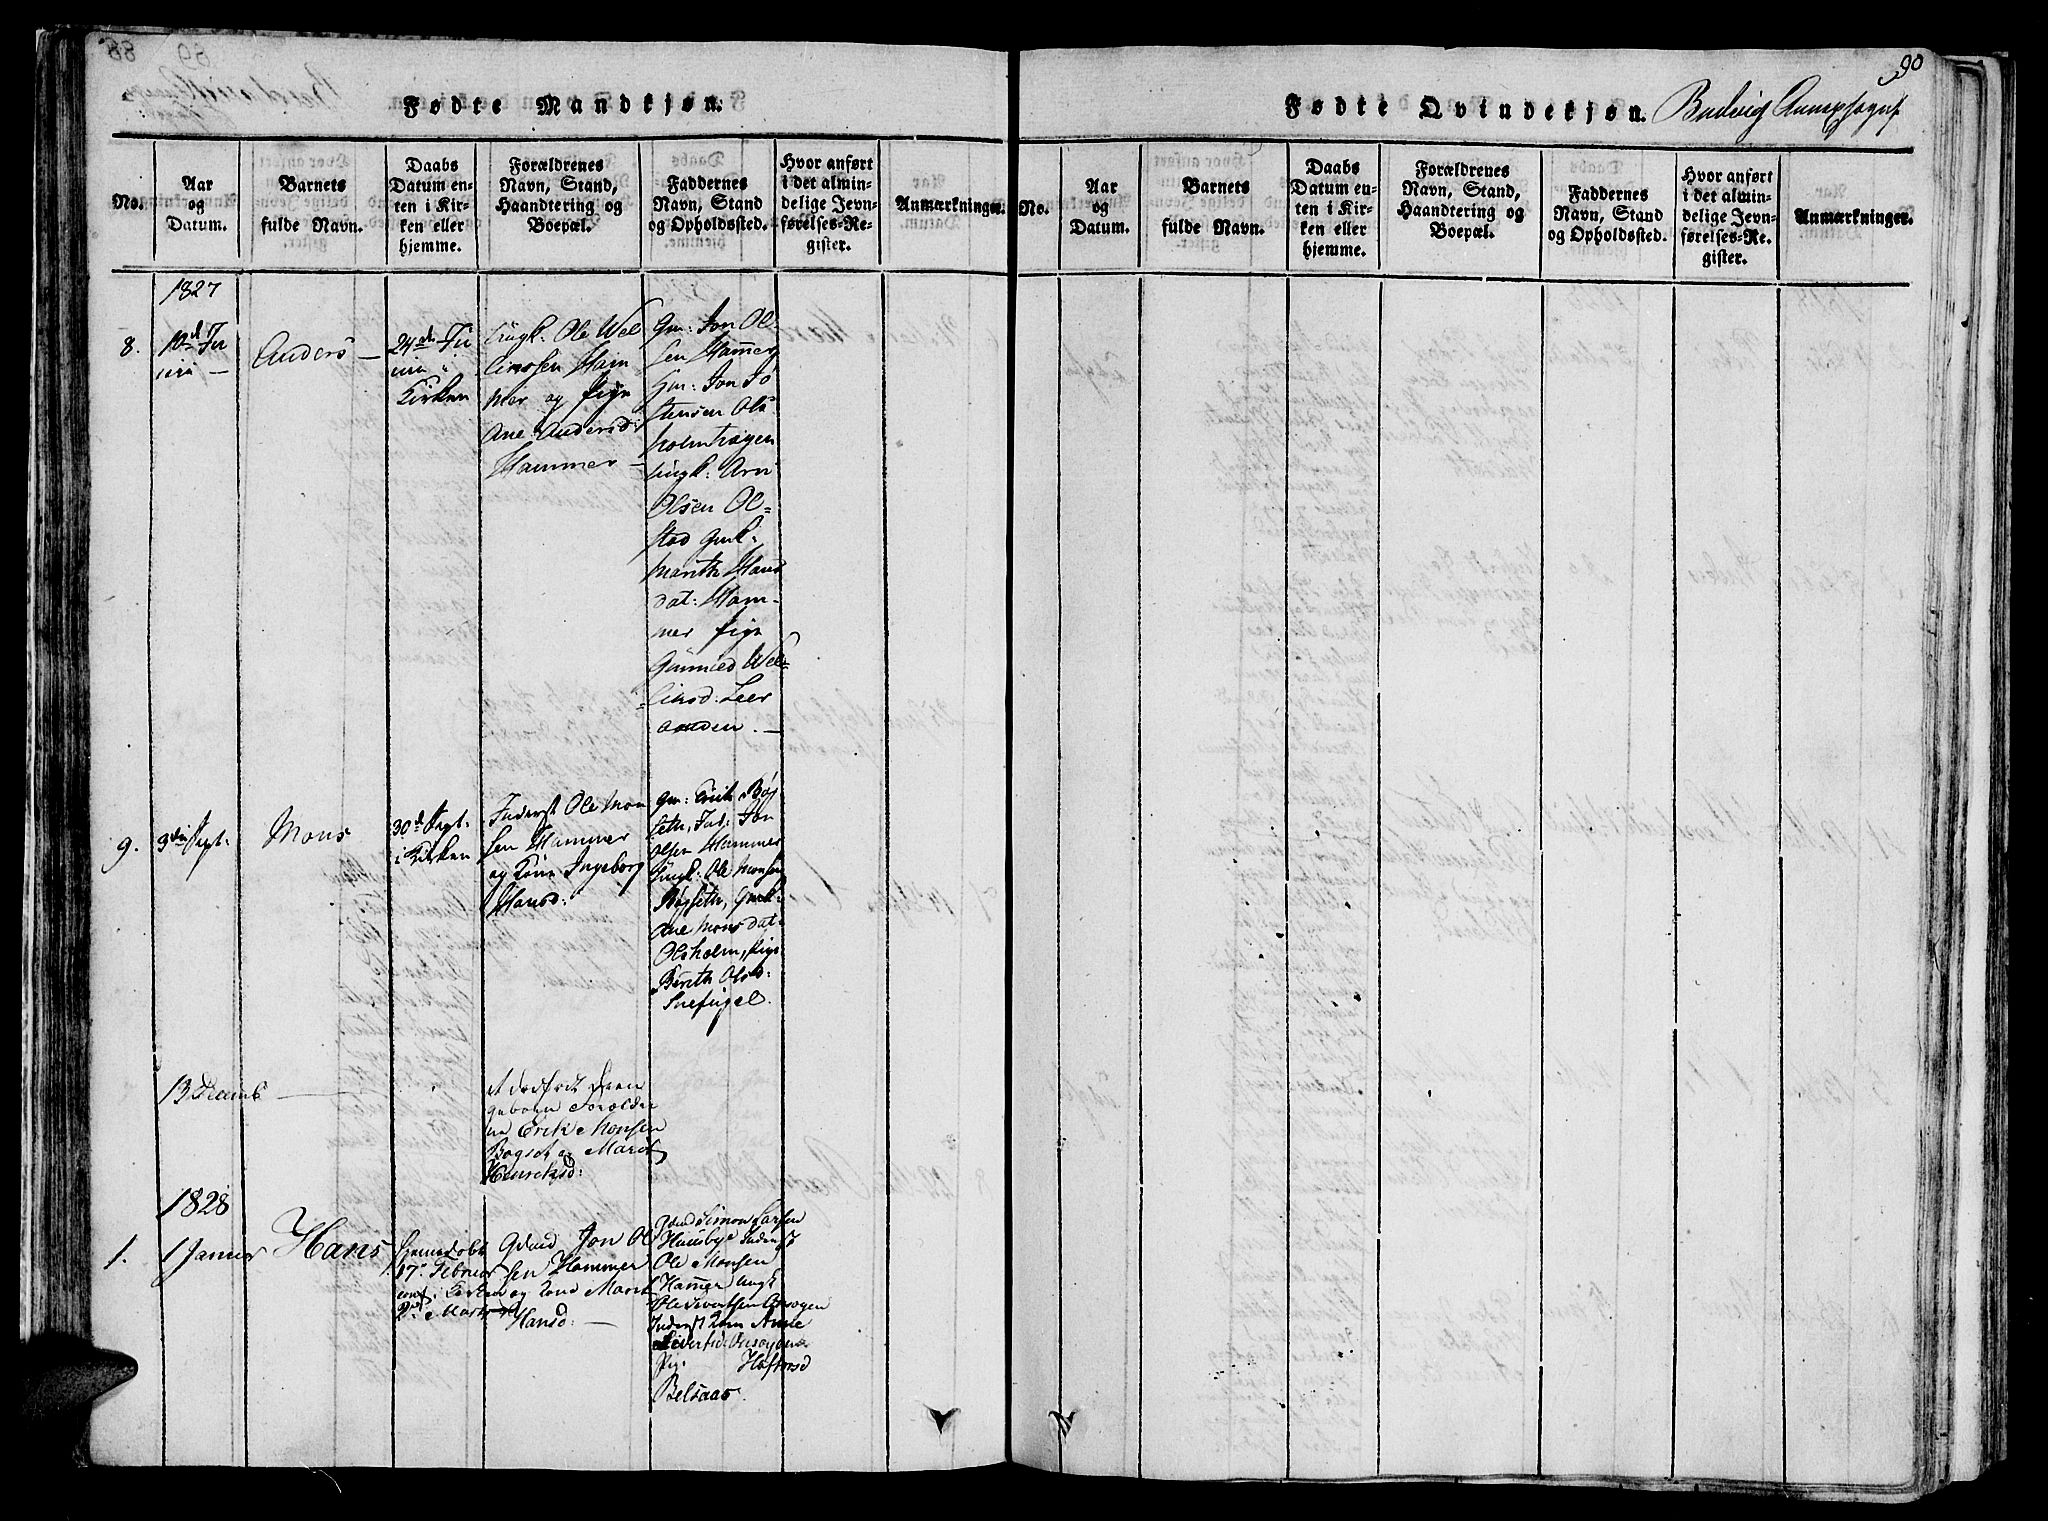 88
89
Fødte Mandkjøn.
No.
Aar
og
Datum.
Barnets
fulde Navn.
Daabs
Datum en-
ten i Kir-
ken eller
hjemme.
Forældrenes
Navn, Stand,
Haandtering og
Boepæl.
Faddernes
Navn, Stand
og Opholdssted.
Hvor anført
i det almin-
delige Jevn-
førelses-Re-
gister.
Anmærkninger.
1827
8.
10d Ju
nii —
Anders —
24de Ju
nii i
Kirken
Ungk: Ole Wel
linssen Ham
mer og Pige
Ane Andersd:
Hammer —
Gm: Jon Ol-
sen Hammer
Gm: Jon Jo
stensen Ols
holmhaugen
Ungk: Arn
Olsen Ol-
stad Gmk:
Marith Hans
dat: Ham-
mer Pige
Gunnild Wel-
linsd: Leer
aanden. —
9.
3die Sept:
Mons
30d Sept:
i Kirken
Inderst Ole Mon
sen Hammer
og Kone Ingeborg
Hansd:
Gm: Erik Bøg
seth, Ind: Jon
Olsen Hammer
Ungk: Ole Monsen
Bøgseth, Gmk:
Ane Monsdat:
Olsholm, Pige
Berith Olsd:
Snefugel.
13 Decemb —
et dødfødt Dreng
gebarn Forældre
ne Erik Monsen
Bøgset og Marit
Henriksd:
1828
1.
1 Januar
Hans
hjemmedøbt
17. Februar
conf. i Kirken
2den Marts
Gdmd Jon Ol
sen Hammer
og Kone Marit
Hansd: —
Gdmd Simon Larsen
Huusbye Inderst
Ole Monsen
Hamer Ungk
Ole Sivertsen
Inderst Kone Anne
Sivertsd:
Pig: Haftorsd
Belsaas.
90
Fødte Qvindekjøn.
Budvig Annexsogn
No.
Aar
og
Datum.
Barnets
fulde Navn.
Daabs
Datum en-
ten i Kir-
ken eller
hjemme.
Forældrenes
Navn, Stand,
Haandtering og
Boepæl.
Faddernes
Navn, Stand
og Opholdssted.
Hvor anført
i det almin-
delige Jevn-
førelses-Re-
gister.
Anmærkninger.